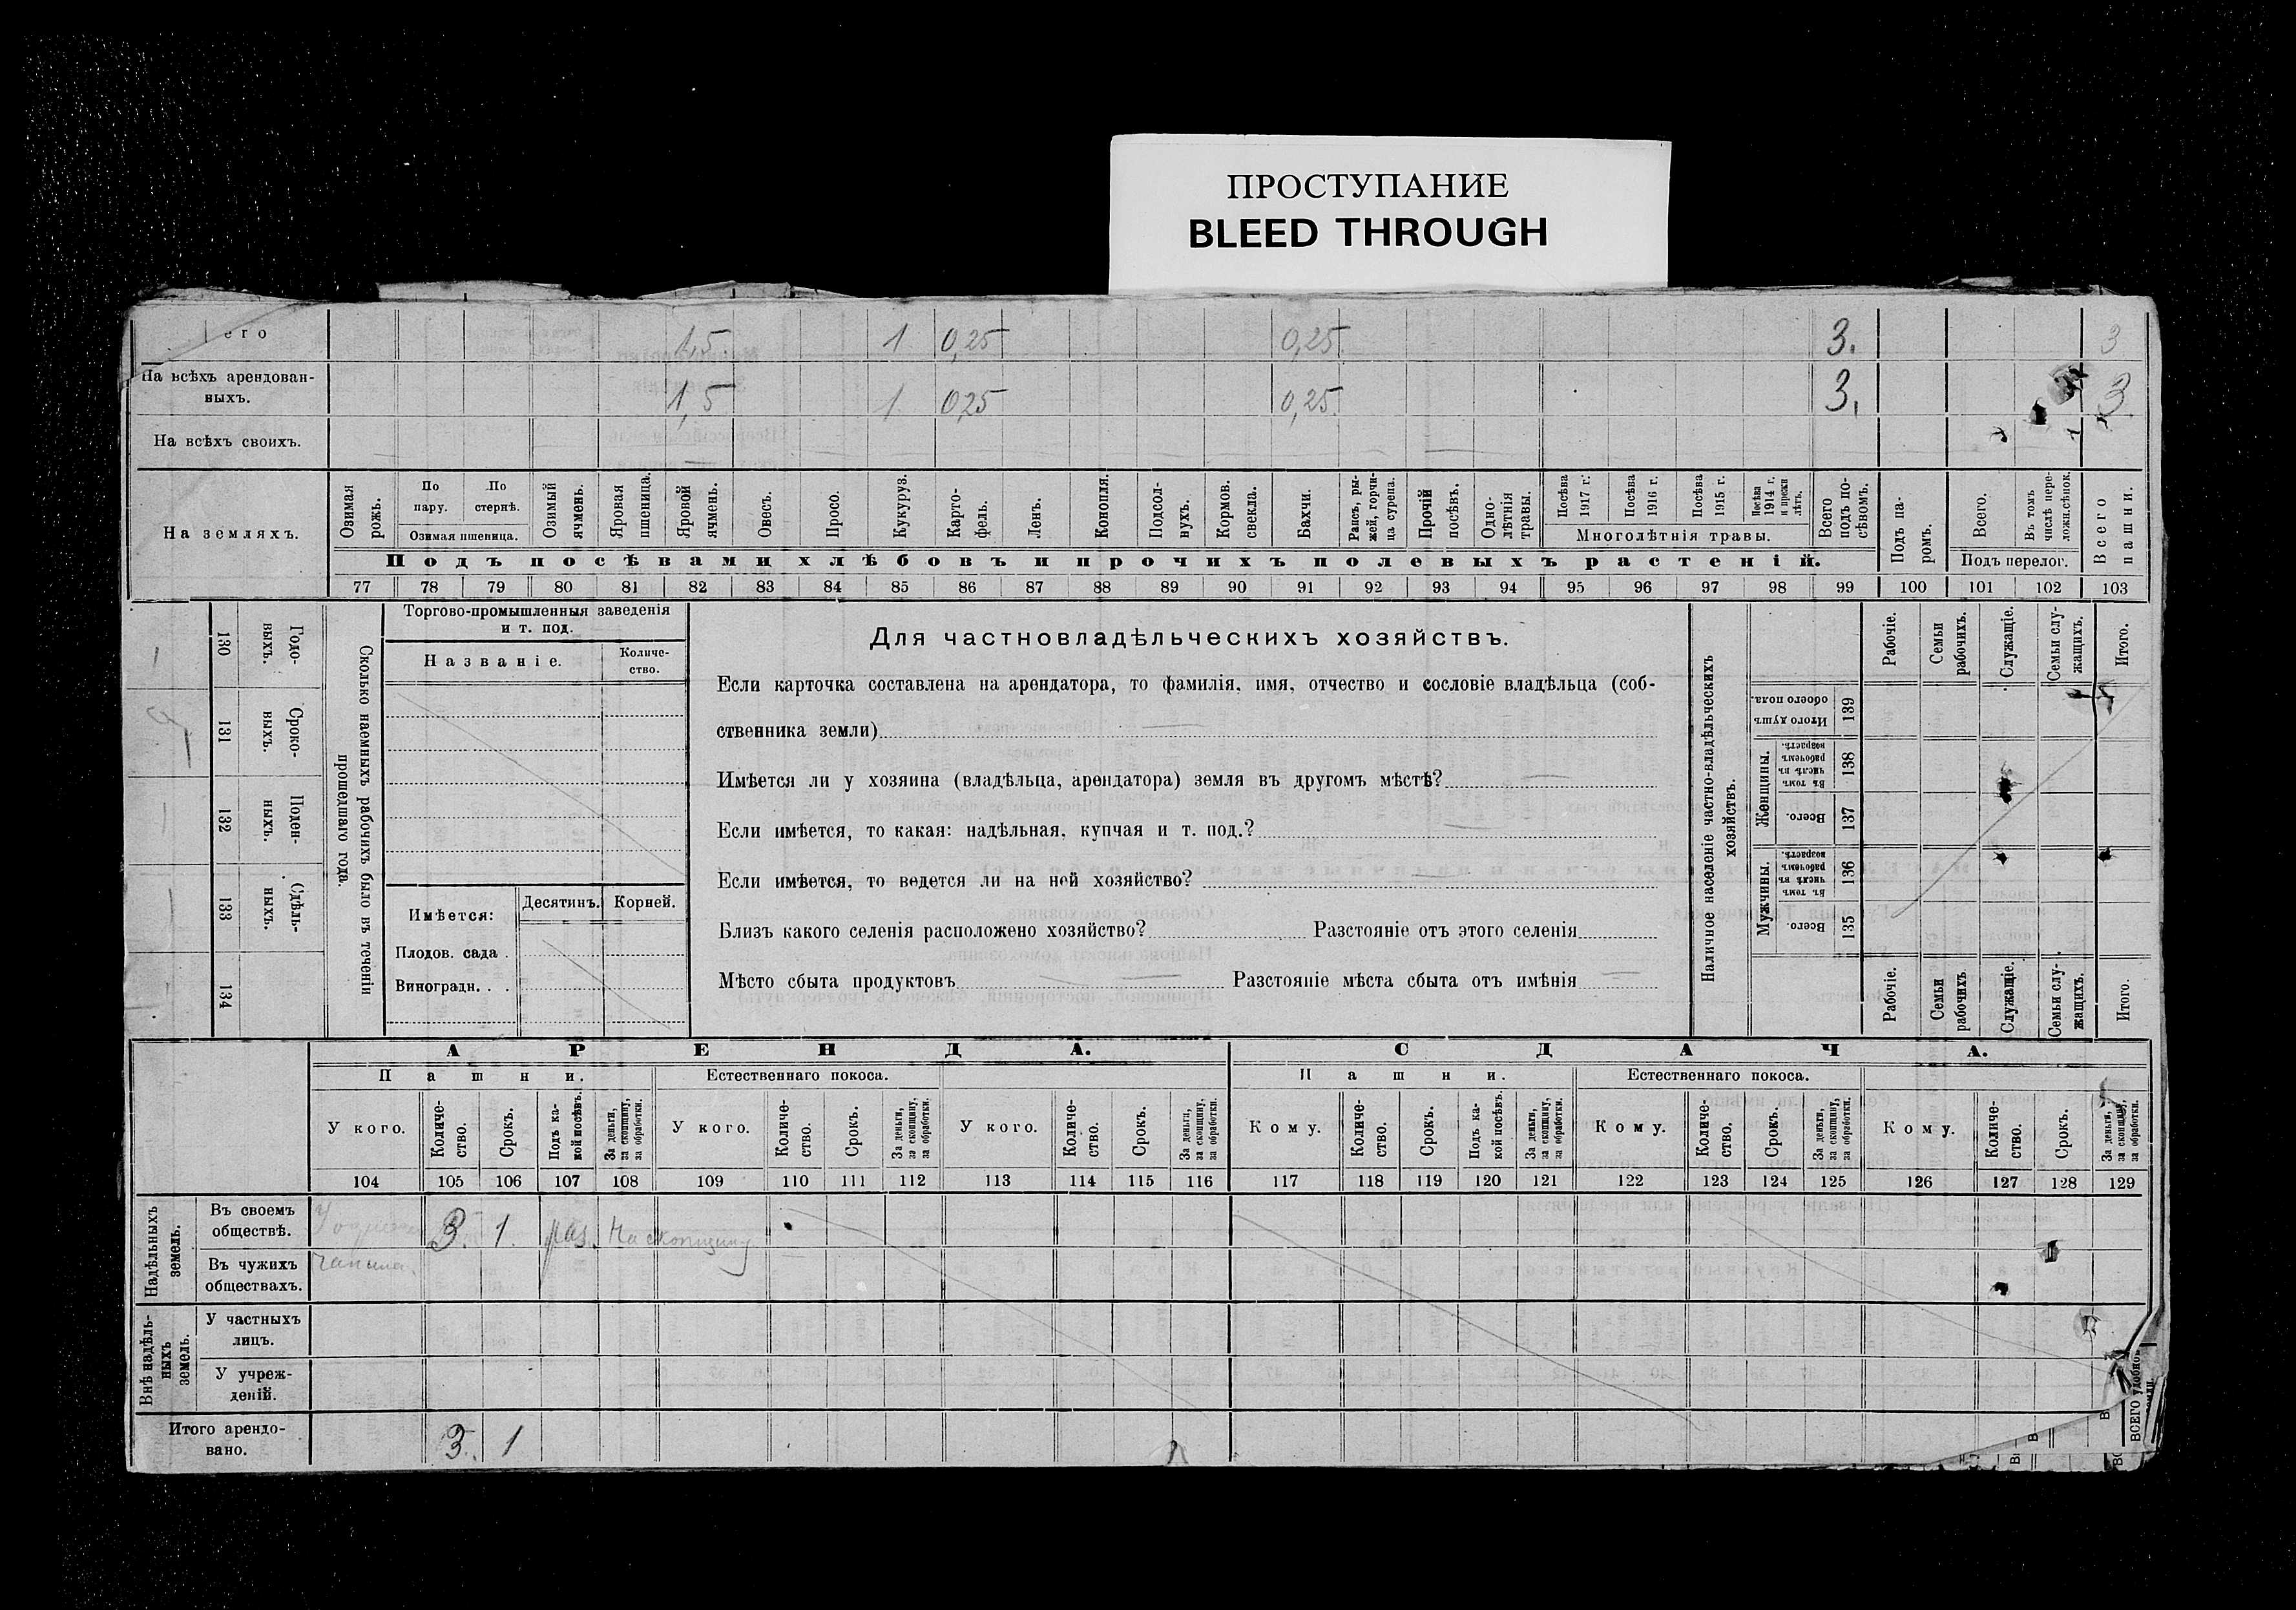 ПРОСТУПАНИЕ
BLEED THROUGH
его 1,5 1 0,25 0,25 3. 3
На всѣхъ арендован-
ныхъ. 1,5 1 0,25 0,25 3. 3
На всѣхъ своихъ.
На земляхъ.
Озимая рожь.
По пару.
По стернѣ.
Озимая пшеница.
Озимый ячмень.
Яровая пшеница.
Яровой ячмень.
Овесъ.
Просо.
Кукуруз.
Карто-
фель.
Ленъ.
Конопля.
Подсол-
нухъ.
Кормов.
свекла.
Бахчи.
Рапсъ, ры-
жей, горчи-
ца сурепа.
Прочій
посѣвъ.
Одно-
лѣтнія
травы.
Посѣва
1917 г.
Посѣва
1916 г.
Посѣва
1915 г.
Посѣва
1914 г.
и прежн
лѣтъ.
Многолѣтнія травы.
Всего
подъ по-
сѣвомъ.
Подъ па-
ромъ.
Всего.
Въ томъ
числѣ пере-
ложн.сѣнок.
Подъ перелог.
Всего
пашни.
Подъ посѣвами хлѣбовъ и прочихъ полевыхъ растеній.
77 78 79 80 81 82 83 84 85 86 87 88 89 90 91 92 93 94 95 96 97 98 99 100 101 102 103
130 Годо-
выхъ.
131 Сроко-
выхъ.
132 Поден-
ныхъ.
133 Сдѣль-
ныхъ.
134
Сколько наемныхъ рабочихъ было въ теченіи
прошедшаго года.
Торгово-промышленныя заведенія
и т. под.
Названіе.
Количе-
ство.
Имѣется:
Десятинъ.
Корней.
Плодов. сада .
Виноградн. . .
Для частновладѣльческихъ хозяйствъ.
Если карточка составлена на арендатора, то фамилія, имя, отчество и сословіе владѣльца (соб-
ственника земли)
Имѣется ли у хозяина (владѣльца, арендатора) земля въ другомъ мѣстѣ?
Если имѣется, то какая: надѣльная, купчая и т. под.?
Если имѣется, то ведется ли на ней хозяйство?
Близъ какого селенія расположено хозяйство? Разстояніе отъ этого селенія
Мѣсто сбыта продуктовъ Разстояніе мѣста сбыта отъ имѣнія
Наличное населеніе частно-владѣльческихъ
хозяйствъ.
Итого душъ
обоего пола.
139
Женщины.
Въ томъ
числѣ въ
рабочемъ
возрастѣ.
138
Всего.
137
Мужчины.
Въ томъ
числѣ въ
рабочемъ
возрастѣ.
136
Всего.
135
Рабочіе.
Семьи
рабочихъ.
Служащіе.
Семьи слу-
жащихъ.
Итого.
Рабочіе.
Семьи
рабочихъ
Служащіе.
Семьи слу-
жащихъ.
Итого.
АРЕНДА.
СДАЧА.
Пашни.
Естественнаго покоса.
Пашни.
Естественнаго покоса.
У кого.
Количе-
ство.
Срокъ.
Подъ ка-
кой посѣвъ.
За деньги,
за скопщину,
за обработки.
У кого.
Количе-
ство.
Срокъ.
За деньги,
за скопщину,
за обработки.
У кого.
Количе-
ство.
Срокъ.
За деньги,
за скопщину,
за обработки.
Кому.
Количе-
ство.
Срокъ.
Подъ ка-
кой посѣвъ.
За деньги,
за скопщину,
за обработки.
Кому.
Количе-
ство.
Срокъ.
За деньги,
за скопщину,
за обработки.
Кому.
Количе-
ство.
Срокъ.
За деньги,
за скопщину,
за обработки.
104 105 106 107 108 109 110 111 112 113 114 115 116 117 118 119 120 121 122 123 124 125 126 127 128 129
Надѣльныхъ
земель.
Въ своемъ
обществѣ.
3. 1. раз. На скопщину
Въ чужихъ
обществахъ.
Внѣ надѣль-
ныхъ
земель.
У частныхъ
лицъ.
У учреж-
деній.
Итого арендо-
вано. 3. 1
ВСЕГО удобной